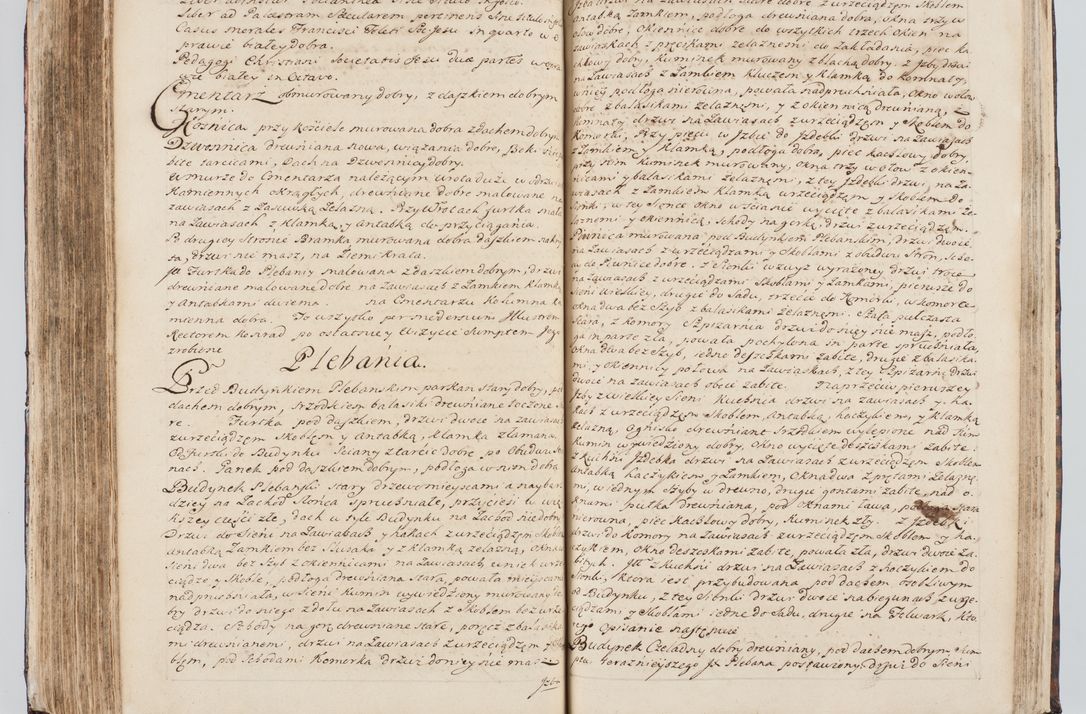 Liber ad Palestram Secularem pertinens
Casus morales Francisci Toleti Soc: Jesu in quarto w o
prawie białey dobra.
Pedagogi Christiani Societatis Jezu duæ partes w opra
wie białey in Octavo.
Cmentarz obmurowany dobry, z daszkiem dobrym
starym.
Kosznica przy kościele murowana dobra z dachem dobrym
Dzwonnica drewniana nowa, wiązania dobre, Bok
bite tarcicami, Dach na Dzwonnicy dobry.
W murze do Cmentarza należącym wrota duże w
Kamiennych okrągłych, drewniane dobre malowane na
zawiasach z Zasuwką żelazną. Przy Wrotach furtka mała
na Zawiasach z klamką, y antabką do przyciągania.
Po drugiey Stronie Bramka murowana dobra daszkiem nakry
ta, drzwi nie masz, na Ziemi krata.
Jt Furtka do Plebanij zmalowana z daszkiem dobrym, drzwi
drewniane malowane dobre na Zawiasach z Zamkiem klamką
y antabkami dwiema. na Cmentarzu Kolumna ka
mienna dobra. To wszystko per modernum Illustrem
Rectorem Kosciad po ostatniey Wizycie Sumptem Jego
zrobione
Plebania.
Przed Budynkiem Plebanskim parkan stary dobry, pod
dachem dobrym, srzodkiem balasiki drewniane toczone
re. Furtka pod daszkiem, drzwi dwoie na zawiasach
z wrzeciądzem Skoblem y antabką, klamka złamana.
Od furtki do Budynku Sciany z tarcic dobre po obudwu Stro
nach. Ganek pod daszkiem dobrym, podłoga w nim dobra
Budynek Plebanski Stary drzewo mieyscami a naybar
dziey na Zachód Słońca spruchniałe, przyciesi w wię
kszey części złe, dach w tyle Budynku na Zachod niedobry
Drzwi do Sieni na Zawiasach y hakach z wrzeciądzem Skoblem
antabką Zamkiem bez klucza y z klamką żelazną, okna w
Sieni dwa bez Szyb z okiennicami na Zawiasach, u nich wrze
ciądze y Skoble, podłoga drewniana stara, powała mieyscami
nadpruchniała, w Sieni kumin wywiedziony murowany do
bry drzwi do niego z dołu na Zawiasach z Skoblem bez wrze
ciądza. Schody na gorę drewniane stare, poręcz z balasika
mi drewnianemi, drzwi na Zawiasach z wrzeciądzem y sko
blem, pod Schodami Komorka drzwi do niey nie ma
Jzba
na Zawiasach dobre z wrzeciądzem Skoblem
antabką Zamkiem, podłoga drewniana dobra, okna trzy w
ołow dobre, okiennice dobre do wszytkich trzech okien na
zawiaskach z przetkami żelaznemi do Zakładania, piec ka
chlowy dobry, kuminek murowany z blachą dobry. z Jzby drzwi
na Zawiasach z Zamkiem kluczem y klamką do komnaty,
w niey podłoga nierówna, powała nadpruchniała, okno w ołow
dobre, z balasikami żelaznemi, y z okiennicą drewnianą, z
komnaty drzwi na Zawiasach z wrzeciądzem y Skoblem do
Komorki, Przy piecu w Jzbie do Jzdebki drzwi na Zawiasach
z Zamkiem y klamką, podłoga dobra, piec kachlowy dobry,
przy nim kuminek murowany, okna trzy w ołow z okien
nicami y balasikami żelaznemi, z tey Jzdebki drzwi, na Za
wiasach z Zamkiem klamką wrzeciądzem y Skoblem do
Sionki, w tey Sionce okno w ścianie wycięte z balasikami że
laznemi y okiennicą, schody na gorkę, drzwi z wrzeciądzem.
Piwnica murowana pod Budynkiem Plebanskim, drzwi dwoie
na Zawiasach z wrzeciądzami y Skoblami z obudwu Stron,
do Piwnice dobre. z Sionki wzwyż wyrażoney drzwi troie
na Zawiasach z wrzeciądzami Skoblami y Zamkami, pierwsze do
Sieni wielkiey, drugie do Sadu, trzecie do Komórki, w komorce
okna dwa bez Szyb z balasikami żelaznemi. Szafa pułczasta
Stara, z komory Spizarnia drzwi do niey nie masz, podło
ga w parte zła, powała pochylona in parte spruchniała,
okna dwa bez szyb, iedne deszczkami zabite, drugie z balasika
mi y okiennicy połową na Zawiaskach, z tey Spizarni drzwi
dwoie na zawiasach obeie zabite. Naprzeciw pierwszey
Jzby z wielkiey Sieni kuchnia drzwi na zawiasach y ha
kach z wrzeciądzem Skoblem, antabką, haczykiem, y klamką
żelazną, ognisko drewniane srzodkiem wylepione nad nim
kumin wywiedziony dobry, okno wycięte deszczkami zabite.
z kuchni Jzdebka drzwi na Zawiasach z wrzeciądzem Skoblem
antabką haczykiem y Zamkiem, okna dwa z prętami żelazne
mi, w iednym Szyby w drewno, drugie gontami zabite, nad o
knami pułka drewniana, pod oknami ława, stara
nierowna, piec kachlowy dobry, kuminek zły. z Jzdebki
drzwi do komory na Zawiasach z wrzeciądzem Skoblem y ha
czykiem, okno deszczkami zabite, powała zła, drzwi dwoie Za
bitych. Jtt z kuchni drzwi na Zawiasach z haczykiem do
Sionki, ktora iest przybudowana pod dachem osobliwym
od Budynku, z tey Sionki drzwi dwoie na biegunach z wrze
ciądzami y Skoblami iedne do Sadu, drugie na Folwark, kto
rego opisanie następuie
Budynek Czeladny dobry drewniany, pod dachem dobrym, Sum
ptu terazniejszego Jx Plebana postawiony, drzwi do Sieni